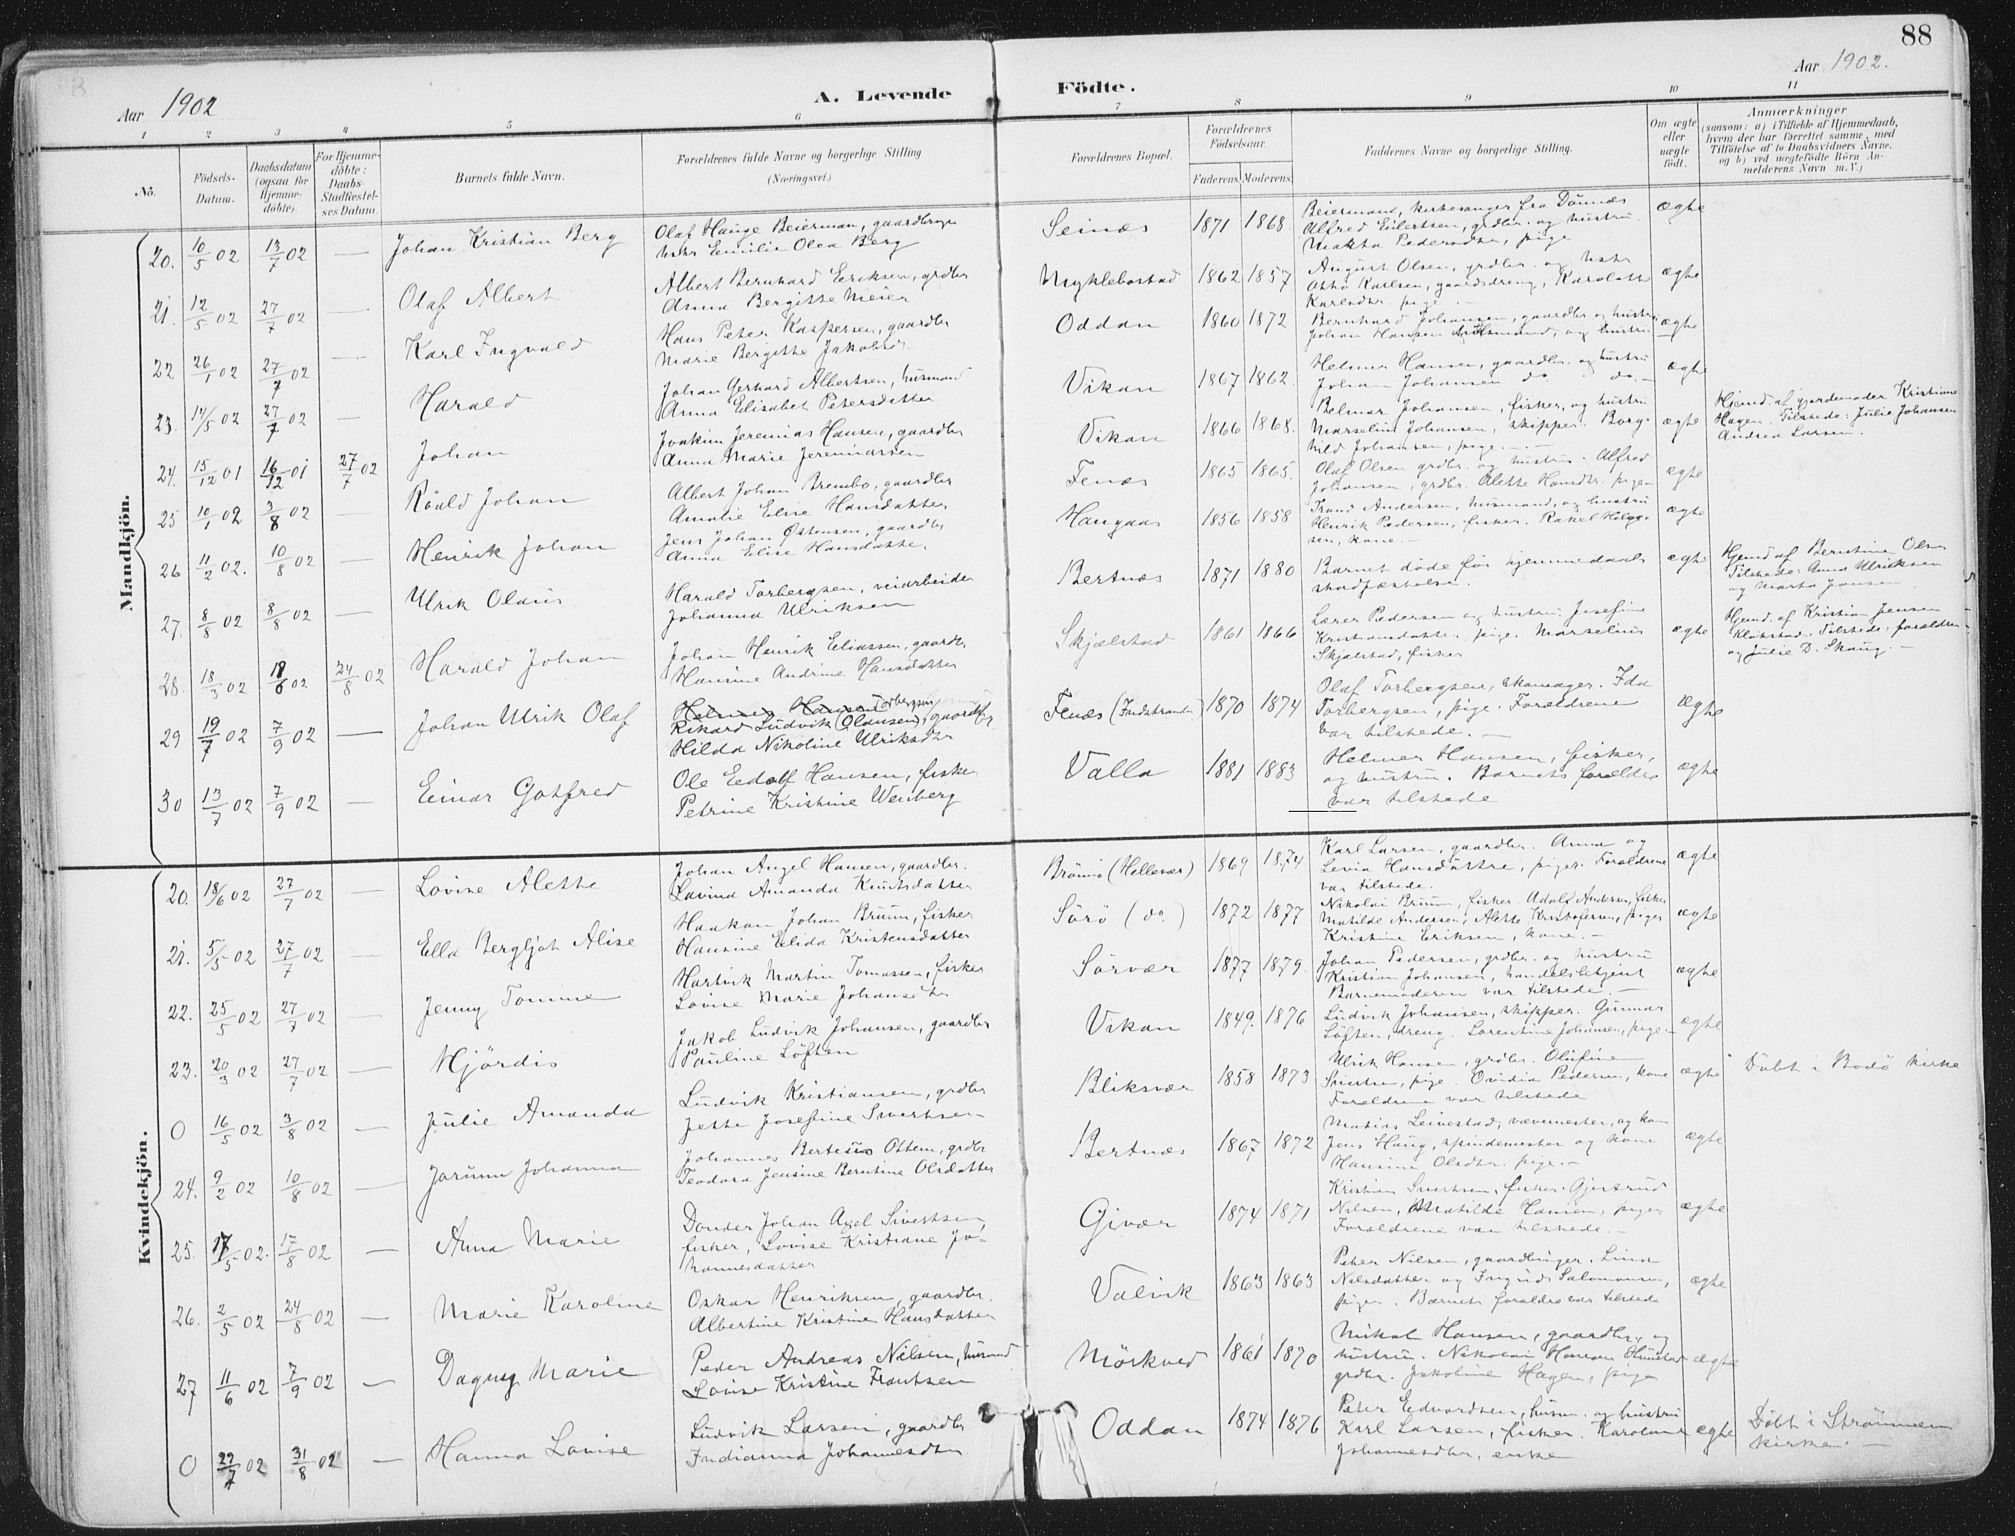 88
Aar 1902
A. Levende
Födte.
Aar 1902.
1 2 3 4 5 6 7 8 9 10 11
No.
Födsels-Datum.
Daabsdatum (ogsaa for Hjemmedöbte).
For Hjemmedöbte: Daabs-Stadfæstelses Datum.
Barnets fulde Navn.
Forældrenes fulde Navne og borgerlige Stilling
(Næringsvei.)
Forældrenes Bopæl.
Forældrenes Födselsaar.
Faderens. Moderens.
Faddernes Navne og borgerlige Stilling.
Om ægte eller uægte födt.
Anmærkninger
(saasom: a) i Tilfælde af Hjemmedaab,
hvem der har forrettet samme, med
Tilföielse af to Daabsvidners Navne.
og b) ved uægtefödte Börn An-
melderens Navn m. V.)
Mandkjön.
20. 10/5 02 13/7 02 — Johan Kristian Berg
Olaf Hauge Beierman, gaardbruger
Emilie Olea Berg
Seines 1871 1868
Beiermand, kirkesanger fra Dönnes
Alfred Eilertsen, grdbr. og hustru
pige
ægte
21. 12/5 02 27/7 02 — Olaf Albert
Albert Bernhard Eriksen, grdbr
Anna Bergitte Meier
Myklebostad 1862 1857
August Olsen, grdbr. og
Otto Karlsen, gaardsdreng, Karolette
Karlsdtr. pige. —
ægte
22 26/1 02 27/7 02 — Karl Ingvald
Hans Peter Kaspersen, gaardbr
Marie Bergitte Jakobsdr
Oddan 1860 1872
Bernhard Johansen, gaardbr og hustru
Johan Hansen og hustru
ægte
23. 17/5 02 27/7 02 — Harald
Johan Gerhard Albertsen, husmand
Anna Elisabet Petersdatter
Vikan 1867 1862.
Helmer Hansen, gaardbr. og hustru
Johan Johansen do. do. —
ægte
24. 15/12 01 16/12 01 27/7 02 Johan
Joakim Jeremias Hansen, gaardbr
Anna Marie Jeremiassen
Vikan 1866 1868.
Helmer Johansen, fisker, og hustru
Marselius Johansen, skipper. Borg-
hild Johansen, pige. —
ægte
Hjemd. af gjordemoder Kristiane
Hagen. Tilstede: Julie Johansen
Andrea Larsen.
25 10/1 02 3/8 02 — Roald Johan
Albert Johan Brembo, gaardbr
Amalie Elise Hansdatter
Fenes 1865 1865.
Olaf Olsen grdbr. og hustru. Alfred
Johansen, grdbr. Alette Hansdtr. pige
ægte
26 11/2 02. 10/8 02 — Henrik Johan
Jens Johan Östensen, gaardbr
Anna Elise Hansdatter
Haugaas 1856 1858
Trond Andersen, husmand, og hustru
Henrik Pedersen, fisker. Rakel Helge-
sen, kone. —
ægte
27. 8/8 02 8/8 02 — Ulrik Olaus
Harald Torbergsen, veiarbeider
Johanna Ulriksen
Bertnes 1871 1880
Barnet döde för hjemmedaabs
stadfæstelse.
ægte
Hjemd. af Berntine Olsen
Tilstede: Anna Ulriksen
og Marta Jansen
28. 18/3 02 18/6 02 24/8 02 Harald Johan
Johan Henrik Eliassen, gaardbr
Hansine Andrine Hansdatter
Skjelstad 1861 1866
Lærer Pedersen og hustru, Josefine
Kristiansdatter, pige. Marselius
Skjelstad, fisker
ægte
Hjemd. af Kristian Jensen
Klokstad. Tilstede: forældrene
og Julie D. Skaug. —
29 19/7 02 7/9 02 — Johan Ulrik Olaf
Rikard Ludvik (Olausen), gaardbr.
Hilda Nikoline Ulriksdtr
Fenes (Indstranden) 1870 1874
Olaf Torbergsen, skomager. Ida
Torbergsen, pige. Forældrene
var tilstede. —
ægte
30 13/7 02 7/9 02 — Einar Gotfred
Ole Edolf Hansen, fisker
Petrine Kristine Wenberg
Valla 1881 1883
Helmer Hansen, fisker,
og hustru. Barnets forældre
var tilstede
ægte
Kvindekjön.
20. 18/6 02 27/7 02 — Lovise Alette
Johan Angel Hansen, gaardbr.
Lovina Amanda Knutsdatter
Brönnö (Hellevær) 1869 1874
Karl Larsen, gaardbr. Anna og
Levia Hansdöttre, piger. Forældrene
var tilstede.
ægte
21. 5/5 02 27/7 02 — Ella Bergljot Alise
Haakon Johan Bruun, fisker
Hansine Elida Kristensdatter
Sörö (do.) 1872 1877
Nikolai Bruun, fisker. Adolf Andersen, fisker
Matilde Andersen, Alette Kristofersen, piger
Kristine Eriksen, kone. —
ægte
22. 25/5 02 27/7 02 — Jenny Tomine
Hartvik Martin Tomassen, fisker
Lovise Marie Johansdtr
Sörvær 1877 1879.
Johan Pedersen, grdbr. og hustru
Kristian Johansen, handelsbetjent
Barnemoderen var tilstede. —
ægte
23. 20/3 02 27/7 02 — Hjördis
Jakob Ludvik Johansen, gaardbr
Pauline Löften
Vikan 1849. 1876
Ludvik Johansen, skipper. Gunnar
Löften, dreng. Lorentine Johansen, pige. —
ægte
0 16/5 02 3/8 02 — Julie Amanda
Ludvik Kristiansen, grdbr
Jette Josefine Sivertsen
Bliksvær 1858 1873
Ulrik Hansen, grdbr. Olufine
Sivertsen, pige. Ovidia Pedersen, kone
Forældrene var tilstede
ægte
Döbt i Bodö kirke
24. 9/2 02 10/8 02 — Jorunn Johanna
Johannes Berteus Ottem, grdbr
Teodora Jensine Berntine Olsdatter
Bertnes 1867 1872
Matias Leinestad, vævemester, og kone
Jens Haug, spindemester og kone
Hansine Olsdtr. pige. —
ægte
25. 17/5 02. 17/8 02 — Anna Marie
Donder Johan Axel Sivertsen,
fisker, Lovise Kristiane Jo-
hannesdatter
Givær 1874 1871
Kristian Sivertsen, fisker. Gjertrud
Nilsen, Matilde Hansen, piger
Forældrene var tilstede. —
ægte
26. 2/5 02 24/8 02 — Marie Karoline
Oskar Henriksen, gaardbr.
Albertine Kristine Hansdatter
Valvik 1863 1863
Peter Nilsen, gaardbruger. Lina
Nilsdatter og Ingrid Salomonsen,
piger. Barnets forældre var tilstede
ægte
27 11/6 02 7/9 02 — Dagny Marie
Peder Andreas Nilsen, husmd
Lovise Kristine Frantsen
Mörkved 1861 1870
Mikal Hansen, gaardbr. og
hustru. Nikolai Hansen Hunstad
grdbr. Jakobine Hagen, pige
ægte
0 22/7 02 31/8 02 — Hanna Lovise
Ludvik Larsen, gaardbr
Indianna Johannesdtr
Oddan 1874 1876
Peter Edvardsen, husm. og hustru
Karl Larsen, fisker. Karoline
Johannesdtr, enke
ægte
Döbt i Strömmen
kirke. —